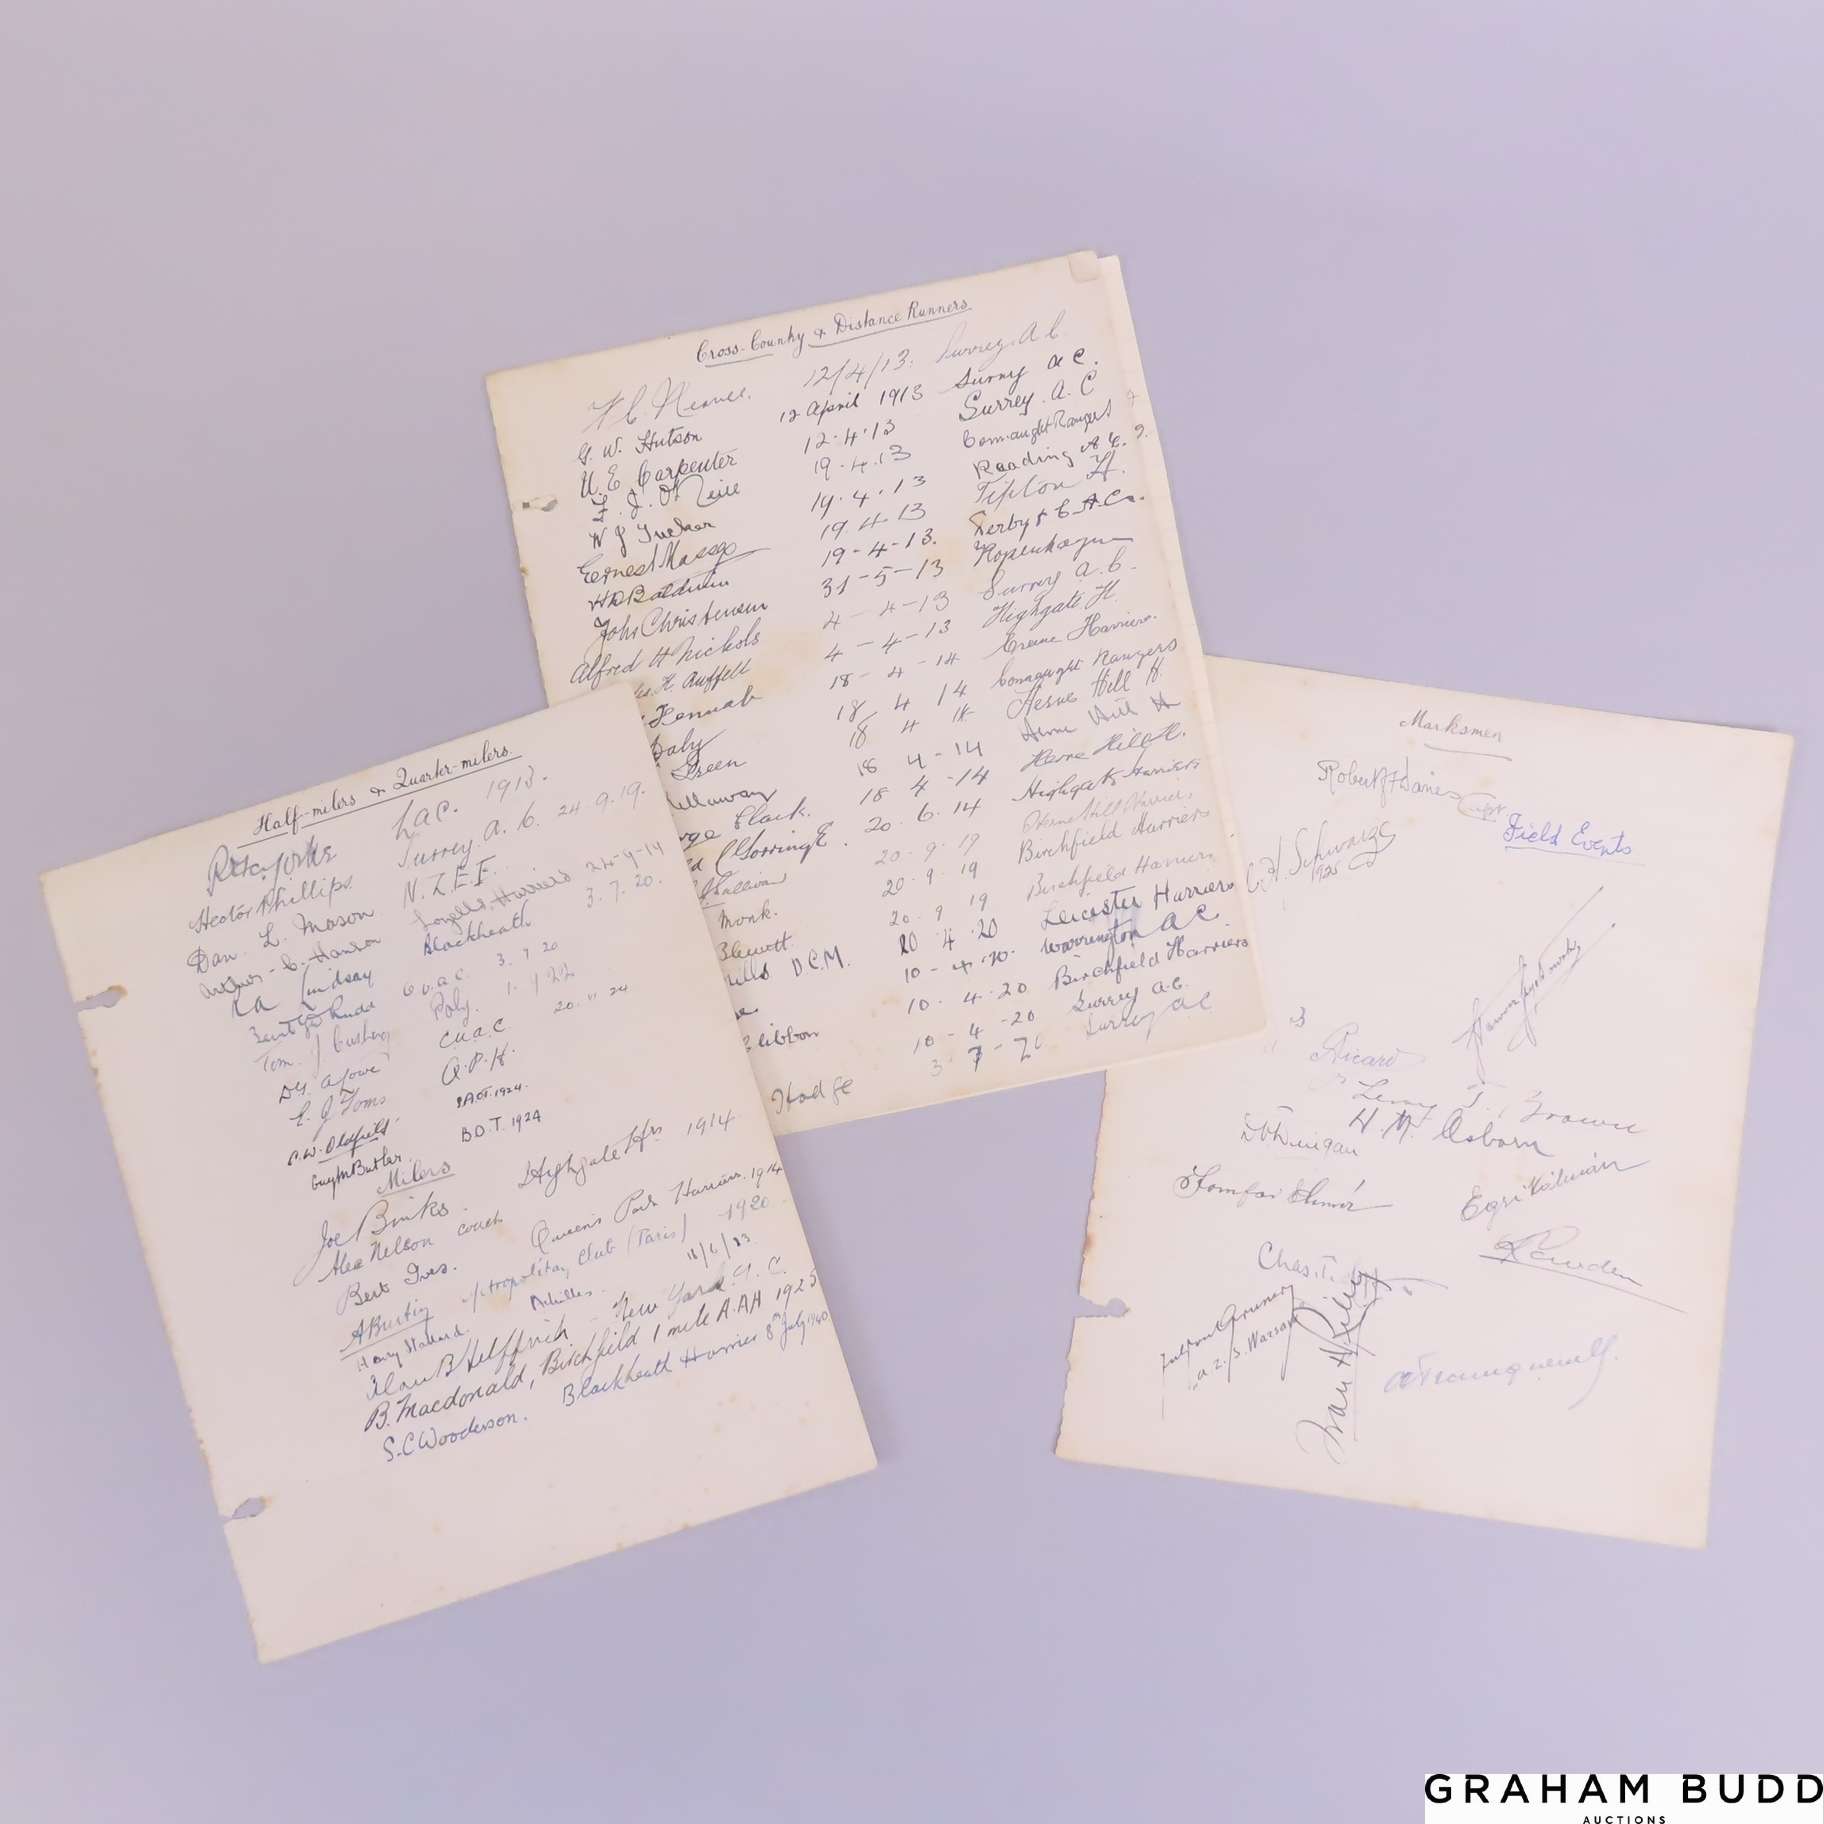 Cross-Country & Distance Runners
12/4/13. Surrey. A C
G. W. Hutson 12 April 1913 Surrey AC.
U. E. Carpenter 12.4.13 Surrey. A. C
F. J. O'Neill 19.4.13 Connaught Rangers
W J Tucker 19.4.13 Reading A.C.
Ernest Massey 19.4.13 Tipton H.
H Baldwin 19-4-13. Derby & C.A.C.
John Christensen 31-5-13 Kopenhagen
Alfred H Nichols 4-4-13 Surrey A.C.
H. Ruffell 4-4-13 Highgate H.
Hannah 18-4-14 Harriers.
Daly 18 4 14 Connaught Rangers
Green 18 4 14 Herne Hill H.
Hallaway 18 4-14 Herne Hill H
Clark. 18 4-14 Herne Hill H.
Gorringe. 20.6.14 Highgate Harriers
Sullivan 20-9-19 Herne Hill Harriers
Monk. 20.9.19 Birchfield Harriers
Blewitt. 20.9 19 Birchfield Harriers
D C.M. 10.4.20 Leicester Harriers
10-4-20. Warrington AC.
10.4.20 Birchfield Harriers
Clibbon 10-4-20 Surrey A.C.
Hodge 3-7-20 Surrey AC
Half-milers & Quarter-milers
LAC. 1913.
Hector Phillips. Surrey. A. C. 24.9.19.
Dan. L. Mason. N. Z. E. F.
Harriers 24-9-19
R A Lindsay Blackheath 3.7.20.
Bevil G D Rudd O.U.A.C. 3.7.20
Tom. J Cushing Poly. 1.7.22
D G. A Lowe C.U.A.C. 20.11.24
E. J Toms Q.P.H.
C.W. Oldfield. 1924.
Guy M Butler. B.O.T. 1924
Milers
Joe Binks. Highgate Hrs 1914
Alec Nelson coach
Bert Ives. Queen's Park Harriers. 1914
A Burtin Metropolitan Club (Paris) 1920
Henry Stallard. Achilles. 11/6/23
Alan B Helffrich - New York A. C.
B. Macdonald, Birchfield 1 mile A.AA 1925
S. C Wooderson. Blackheath Harriers 8th July 1940
Marksmen
Robert H Davies Capt
Field Events
C H. Schwarze
1925
Ricard
Leroy T. Brown
H. M. Osborn
Duigan
Somfai Elemér
Egri Kálmán
Chas.
A.Z.S. Warsaw
Ivan H Riley
GRAHAM BUDD
AUCTIONS